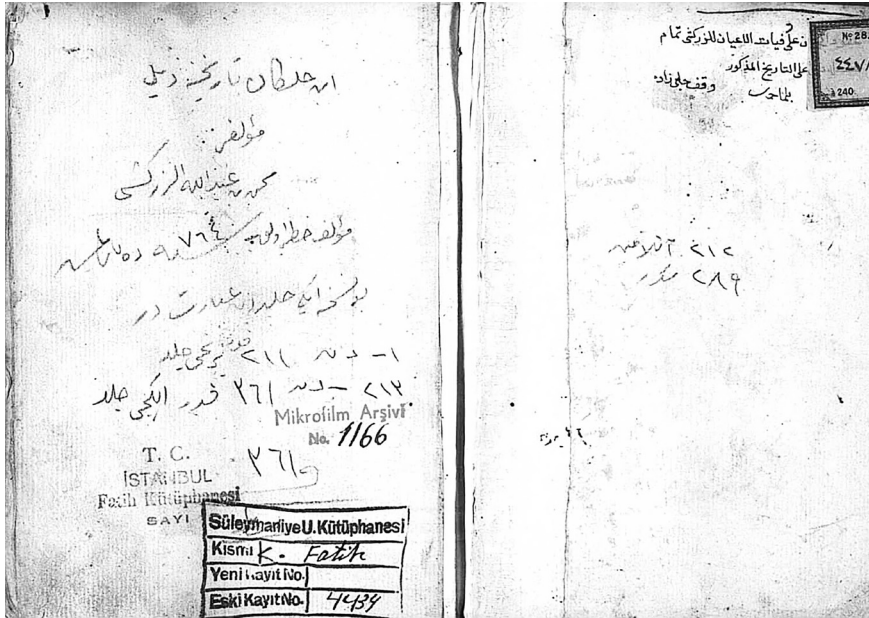 ابن خلكان تاريخنه ذيل
مؤلفى :
محمد بن عبدالله الزركشى
مؤلف خطيله ٧٦٤
بو نسخه ايكى جلددن عبارت در
١ – دن ٢١١ قدر برنجى جلد
٢١٢ – دن ٣٦١ قدر ايكنجى جلد
Mikrofilm Arşivi
No. 1166
٣٦١
T. C.
İSTANBUL
Fatih Kütüphanesi
SAYI
Süleymaniye U. Kütüphanesi
Kısmı K. Fatih
Yeni Kayıt No.
Eski Kayıt No. 4434
على فيات الاعيان للزركشى تمام
على التاريخ المذكور
وقف چلبى زاده
No 28
٤٤٧
240
٢١٢
٢٨٩ مكرر